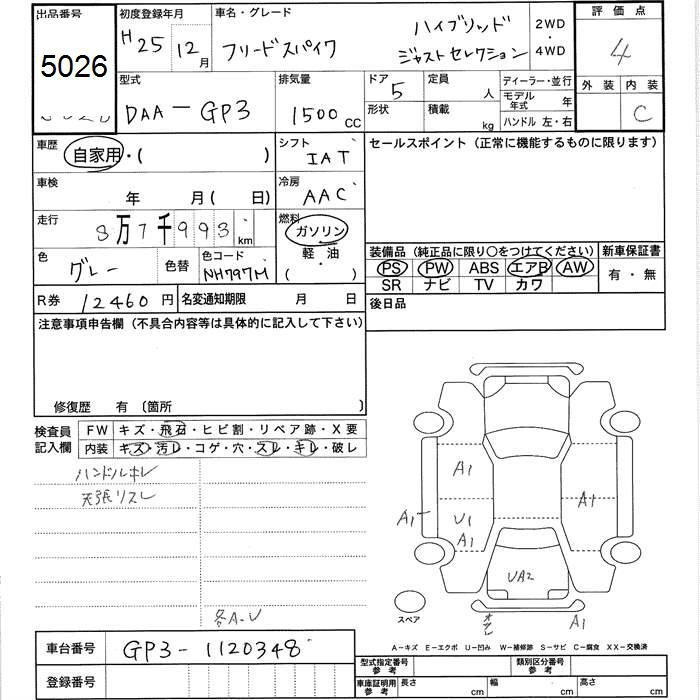 出品番号 初度登録年月 車名・グレード 評価点
5026 H25 12月 フリードスパイク ハイブリッド ジャストセレクション 2WD・4WD 4
外装 内装
C
型式 排気量 ドア 定員 ディーラー・並行
DAA-GP3 1500CC 5 人 モデル年式 年
形状 積載 kg ハンドル 左・右
車歴 自家用・( ) シフト IAT セールスポイント (正常に機能するものに限ります)
車検 年 月( 日) 冷房 AAC
走行 8万7千993km 燃料 ガソリン・軽油 ( )
色 グレー 色替 色コード NH797M
装備品 (純正品に限り○をつけてください) 新車保証書
PS PW ABS エアB AW 有・無
SR ナビ TV カワ
R券 12460円 名変通知期限 月 日 後日品
注意事項申告欄 (不具合内容等は具体的に記入して下さい)
修復歴 有 〔箇所 〕
検査員記入欄 FW キズ・飛石・ヒビ割・リペア跡・X要
内装 キズ・汚レ・コゲ・穴・スレ・キレ・破レ
ハンドルキレ
天張リスレ
各A-U
A1
U1
A1
A1
A1
UA2
A1
スペア
A-キズ E-エクボ U-凹み W-補修跡 S-サビ C-腐食 XX-交換済
車台番号 GP3-1120348
登録番号
型式指定番号参考 類別区分番号参考
車庫証明用参考 長さ cm 幅 cm 高さ cm